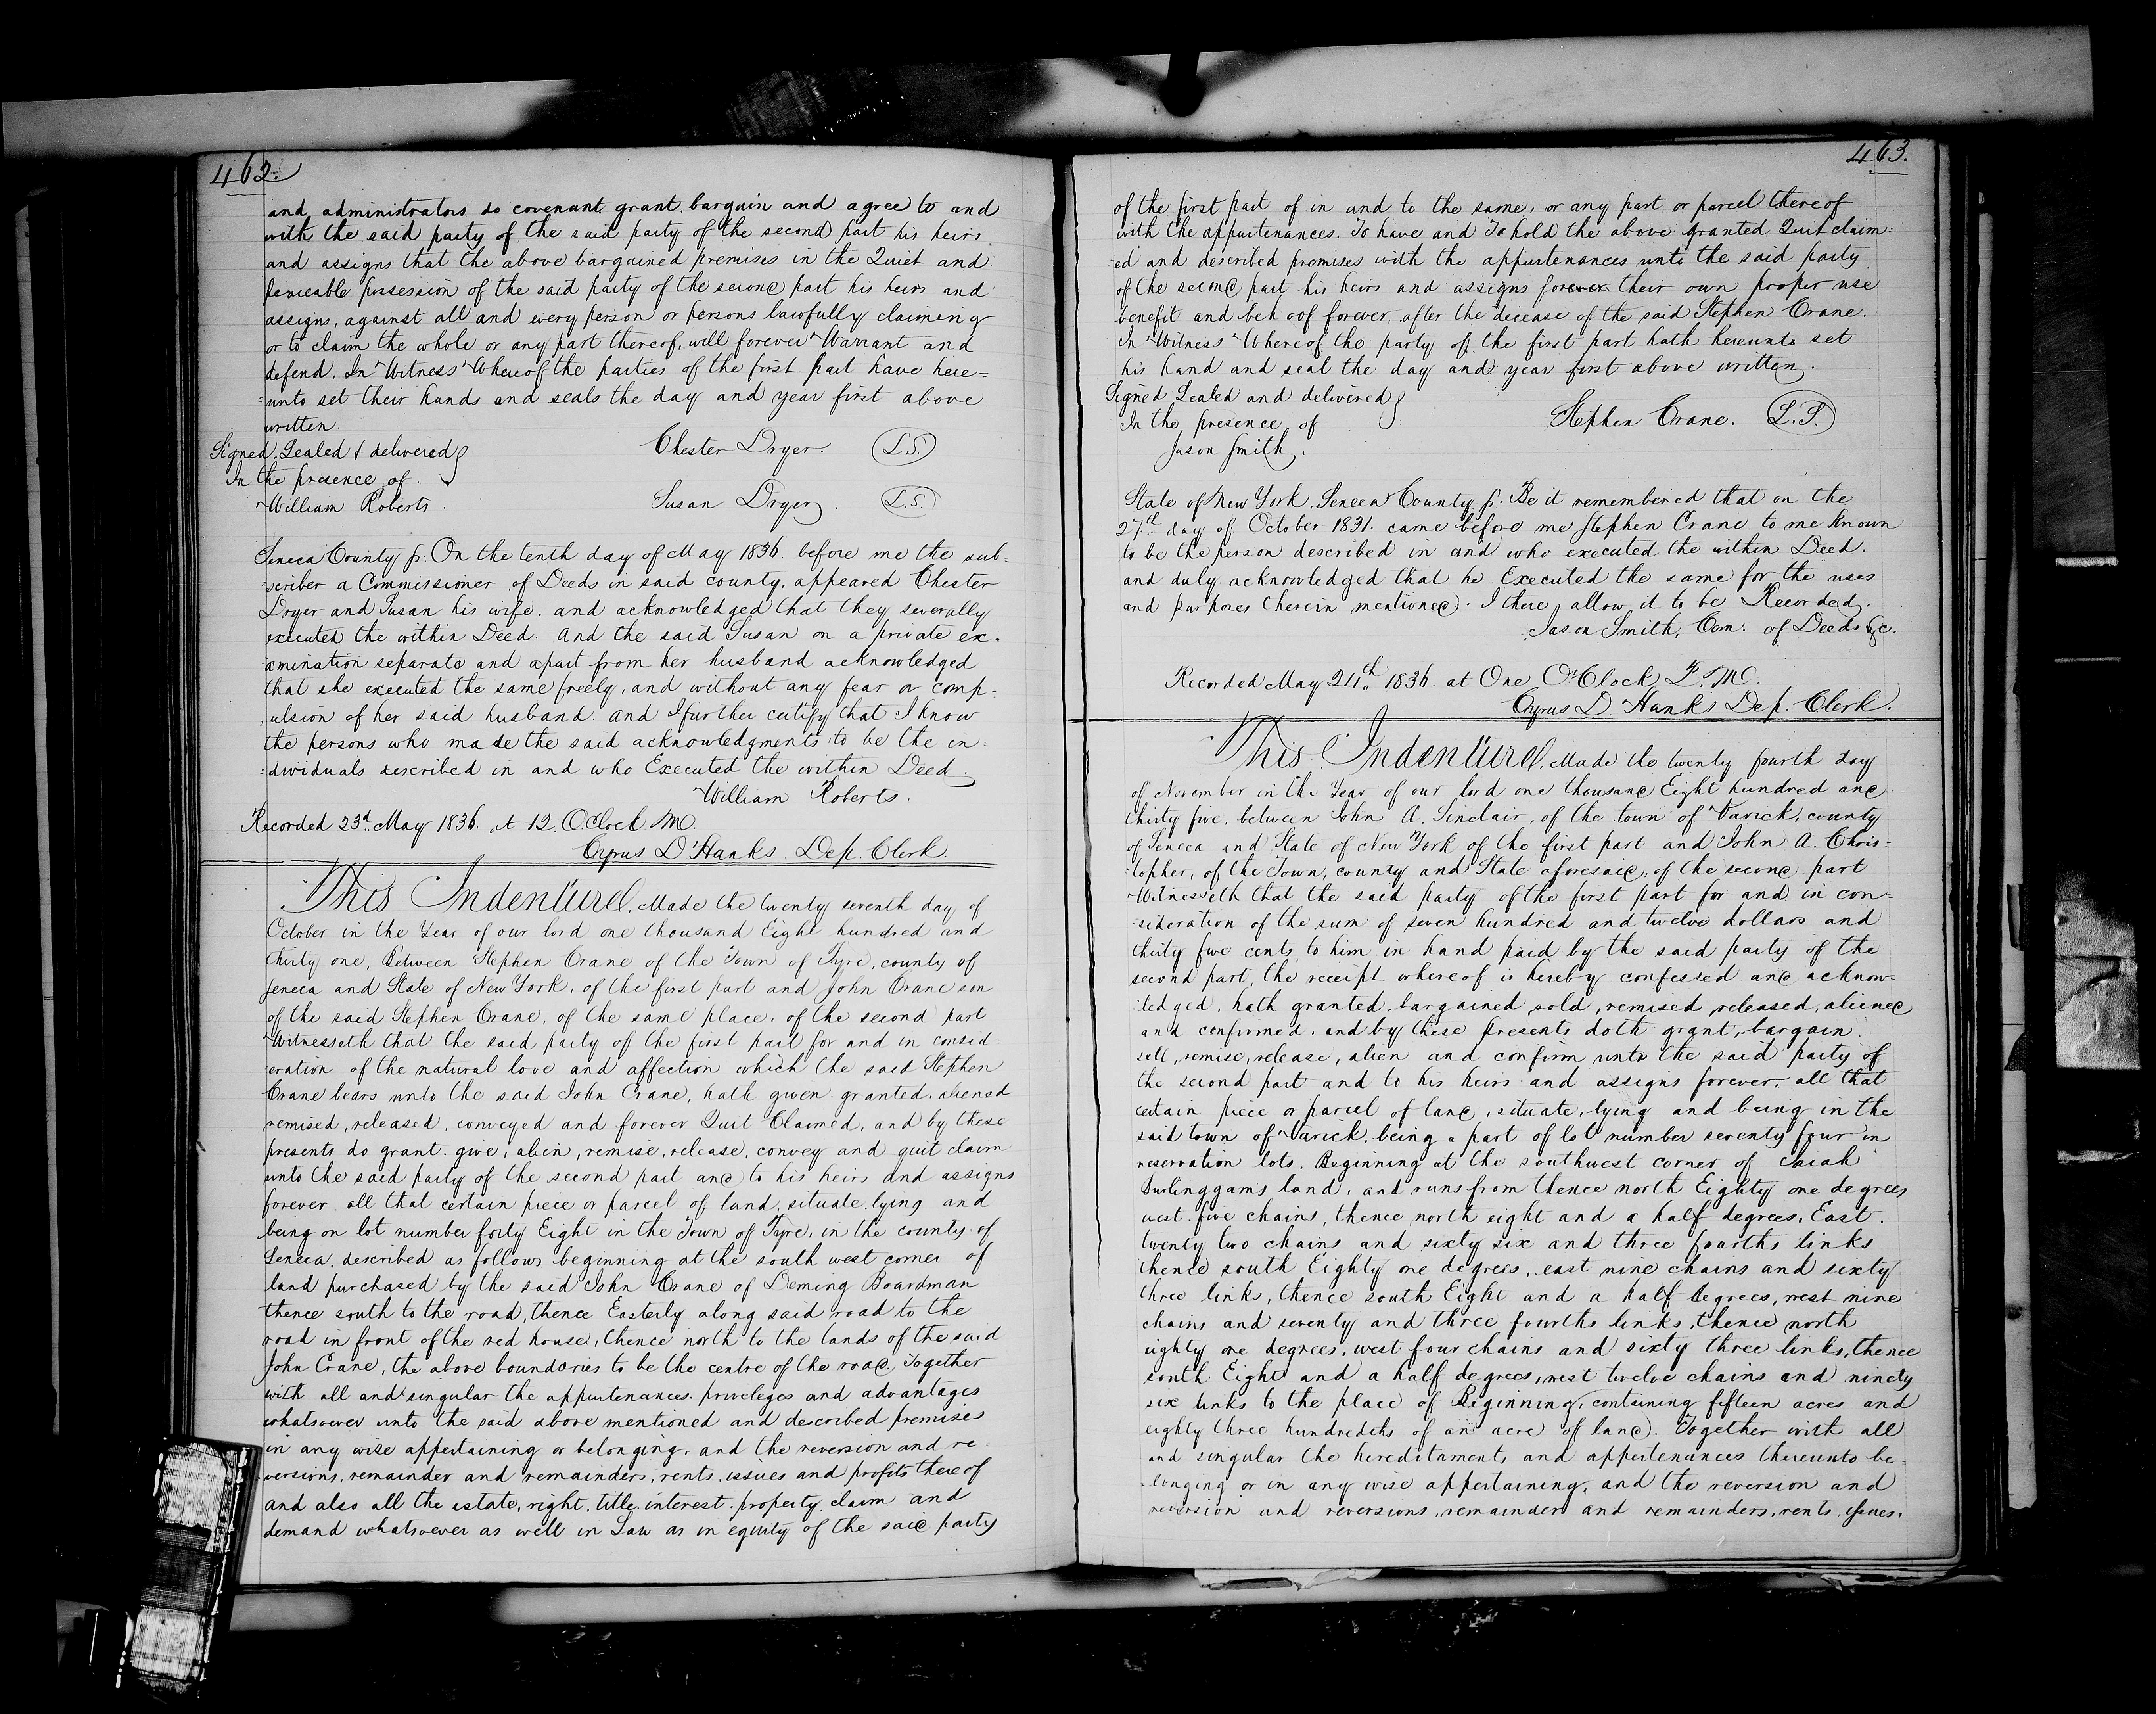 462.
and administrators do covenant grant. bargain and agree to and
with the said party of the said party of the second part his heirs
and assigns that the above bargained premises in the Quiet and
peaceable possession of the said party of the second part his heirs and
assigns, against all and every person or persons lawfully claiming
or to claim the whole or any part thereof, will forever Warrant and
defend. In Witness Whereof the parties of the first part have here=
=unto set their hands and seals the day and year first above
written.
Signed, Sealed & delivered
In the presence of
William Roberts.
Chester Dryer. (L.S.)
Susan Dryer. (L.S.)
Seneca County ss. On the tenth day of May 1836. before me the sub-
=scriber a Commissioner of Deeds in said county, appeared Chester
Dryer and Susan his wife. and acknowledged that they severally
executed the within Deed. And the said Susan on a private ex-
amination separate and apart from her husband acknowledged
that she executed the same freely, and without any fear or comp-
ulsion of her said husband. and I further certify that I know
the persons who made the said acknowledgments to be the in=
=dividuals described in and who Executed the within Deed.
William Roberts.
Recorded 23d. May 1836. at 12. O.Clock M.
Cyrus D Hanks. Dep. Clerk.
This Indenture, Made the twenty seventh day of
October in the Year of our lord one thousand Eight hundred and
thirty one, Between Stephen Crane of the Town of Tyre, county of
Seneca and State of New York, of the first part and John Crane son
of the said Stephen Crane, of the same place, of the second part
Witnesseth that the said party of the first part for and in consid
eration of the natural love and affection which the said Stephen
Crane bears unto the said John Crane, hath given. granted. aliened
remised, released, conveyed and forever Quit Claimed, and by these
presents do grant. give, alien, remise, release, convey and quit claim
unto the said party of the second part and to his heirs and assigns
forever all that certain piece or parcel of land, situate. lying and
being on lot number forty Eight in the Town of Tyre, in the county of
Seneca, described as follows beginning at the south west corner of
land purchased by the said John Crane of Deming Boardman
thence south to the road, thence Easterly along said road to the
road in front of the red house, thence north to the lands of the said
John Crane, the above boundaries to be the centre of the road, Together
with all and singular the appurtenances. priveleges and advantages
whatsoever unto the said above mentioned and described premises
in any wise appertaining or belonging, and the reversion and re
versions, remainder and remainders, rents, issues and profits thereof
and also all the estate, right, title. interest. property. claim and
demand whatsoever as well in Law as in equity of the said party
463.
of the first part of in and to the same, or any part or parcel thereof
with the appurtenances. To have and To hold the above granted Quit claim=
=ed and described premises with the appurtenances unto the said party
of the second part his heirs and assigns forever their own proper use
benefit and behoof forever, after the decease of the said Stephen Crane.
In Witness Whereof the party of the first part hath hereunto set
his hand and seal the day and year first above written.
Signed Sealed and delivered
In the presence of
Jason Smith.
Stephen Crane. (L.S.)
State of New York, Seneca County ss. Be it remembered that on the
27th day of October 1831. came before me Stephen Crane to me known
to be the person described in and who executed the within Deed.
and duly acknowledged that he Executed the same for the uses
and purposes therein mentioned. I there allow it to be Recorded.
Jason Smith, Com. of Deeds &c.
Recorded May 24th. 1836. at One O'Clock P.M.
Cyrus D. Hanks Dep. Clerk.
This Indenture, Made the twenty fourth day
of November in the Year of our lord one thousand Eight hundred and
thirty five, between John A. Sinclair, of the town of Varick, county
of Seneca and State of New York of the first part and John A. Chris=
=topher, of the Town, county and State aforesaid, of the second part
Witnesseth that the said party of the first part for and in con-
-sideration of the sum of seven hundred and twelve dollars and
thirty five cents, to him in hand paid by the said party of the
second part, the receipt whereof is hereby confessed and acknow-
ledged, hath granted. bargained, sold, remised, released, aliened
and confirmed. and by these presents doth grant, bargain.
sell, remise, release, alien and confirm unto the said party of
the second part and to his heirs and assigns forever. all that
certain piece or parcel of land, situate, lying and being in the
said town of Varick, being a part of lot number seventy four in
reservation lots. Beginning at the southwest corner of
land, and runs from thence north Eighty one degrees
west. five chains, thence north eight and a half degrees, East.
twenty two chains and sixty six and three fourths links
thence south Eighty one degrees, east nine chains and sixty
three links, thence south Eight and a half degrees, west nine
chains and seventy and three fourths links, thence north
eighty one degrees, west four chains and sixty three links, thence
south Eight and a half degrees, west twelve chains and ninety
six links to the place of Beginning, containing fifteen acres and
eighty three hundredths of an acre of land. Together with all
and singular the hereditaments and appertenances thereunto be-
-longing or in any wise appertaining, and the reversion and
reversion and reversions, remainder and remainders, rents, issues,